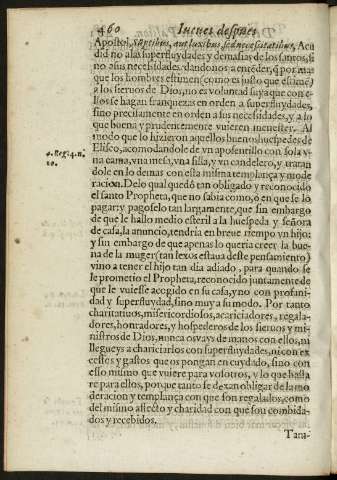 460 Jueues despues
Apostol, Sumptibus, aut luxibus, sed necessitatibus, Acu
did no a las superfluydades y demasias de los santos, si
no a sus necessidades. dandonos a enteder, q̃ por mas
que los hombres estimen (como es justo que estimẽ)
a los sieruos de Dios, no es voluntad suya que con e-
llos se hagan franquezas en orden a superfluydades,
sino precisamente en orden a sus necessidades, y a lo
que buena y prudentemente vuieren menester. Al
modo que lo hizieron aquellos buenos huespedes de
4. Reg. 4. n.
10.
Eliseo, acomodandole de vn aposentillo con sola v-
na cama, vna mesa, vna silla, y vn candelero, y tratan
dole en lo demas con esta misma templança y mode
racion. De lo qual quedò tan obligado y reconocido
el santo Propheta, que no sabia como, ò en que se lo
pagar: y pagoselo tan largamente, que sin embargo
de que le hallo medio esteril a la huespeda y señora
de casa, la anuncio, tendria en breue tiempo vn hijo:
y sin embargo de que apenas lo queria creer la bue-
na de la muger (tan lexos estaua deste pensamiento)
vino a tener el hijo tan dia adiado, para quando se
le prometio el Propheta, reconocido juntamente de
que le vuiesse acogido en su casa, y no con profani-
dad y superfluydad, sino muy a su modo. Por tanto
charitatiuos, misericordiosos, acariciadores, regala-
dores, honradores, y hospederos de los sieruos y mi-
nistros de Dios, nunca os vays de manos con ellos, ni
llegueys a chariciarlos con superfluydades, ni con ex
cessos y gastos que os pongan en cuydado, sino con
esso mismo que vuiere para vosotros, y lo que basta
re para ellos, porque tanto se dexan obligar de la mo
deracion y templança con que son regalados, como
del mismo affecto y charidad con que son combida-
dos y recebidos.
Tana-